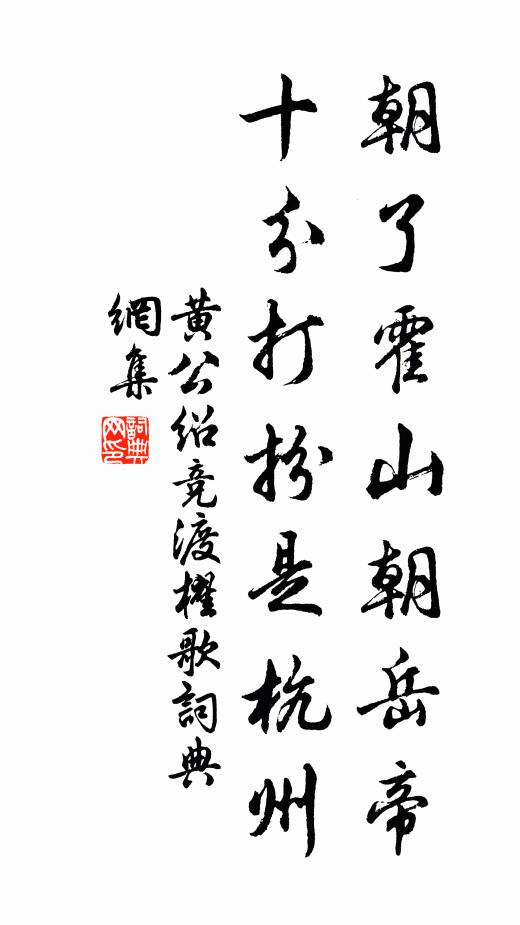 朝了霍山朝岳帝
十分打扮是杭州
黄公绍竞渡櫂歌詞典
網集
詞典
网印